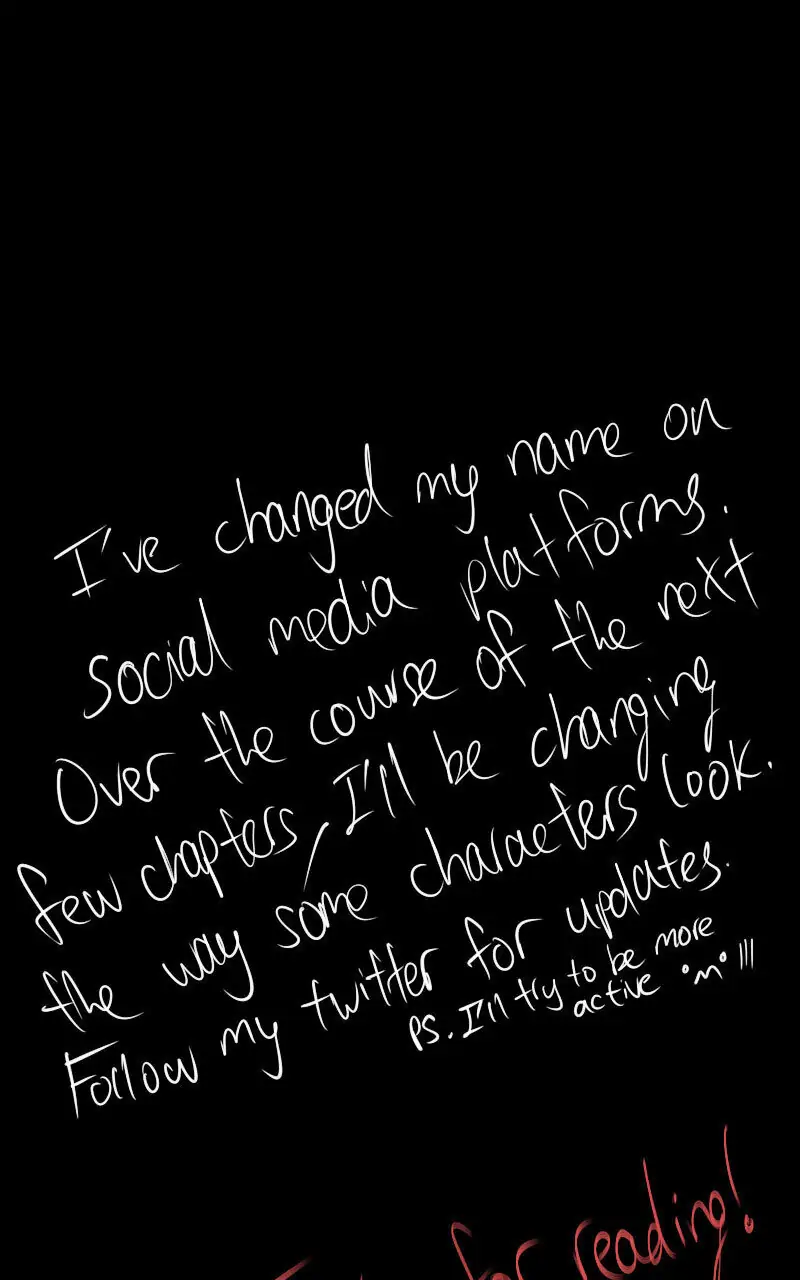 I've changed my name on
social media platforms.
Over the course of the next
few chapters, I'll be changing
the way some characters look.
Follow my twitter for updates.
PS. I'll try to be more
active °m° |||
for reading!